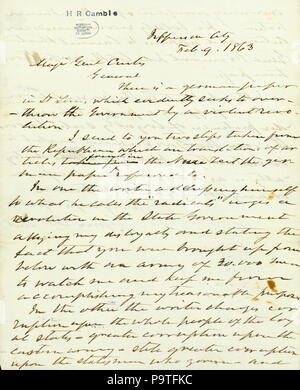 H R Gamble
Jefferson City
Feb 9. 1863
Majr Genl Curtis
General
There is a German paper
in St Louis which evidently seeks to over-
throw the Government by a violent revo-
lution.
I send to you two slips taken from
the Republican which are translations of ar-
ticles in the Neue Zeit the Ger-
man paper
In one the writer addressing himself
to what he calls the "radicals" urges a
revolution in the State Government
alleging my disloyalty and stating the
fact that you were brought up from
below with an army of 20.000 men
to watch me and keep me from
accomplishing my treasonable purpose
In the other the writer charges cor-
ruption upon the whole people of the loy-
al states - greater corruption upon the
eastern states greater corruption
upon the statesmen who govern - and
alamy
Image ID: P9TFKC
www.alamy.com